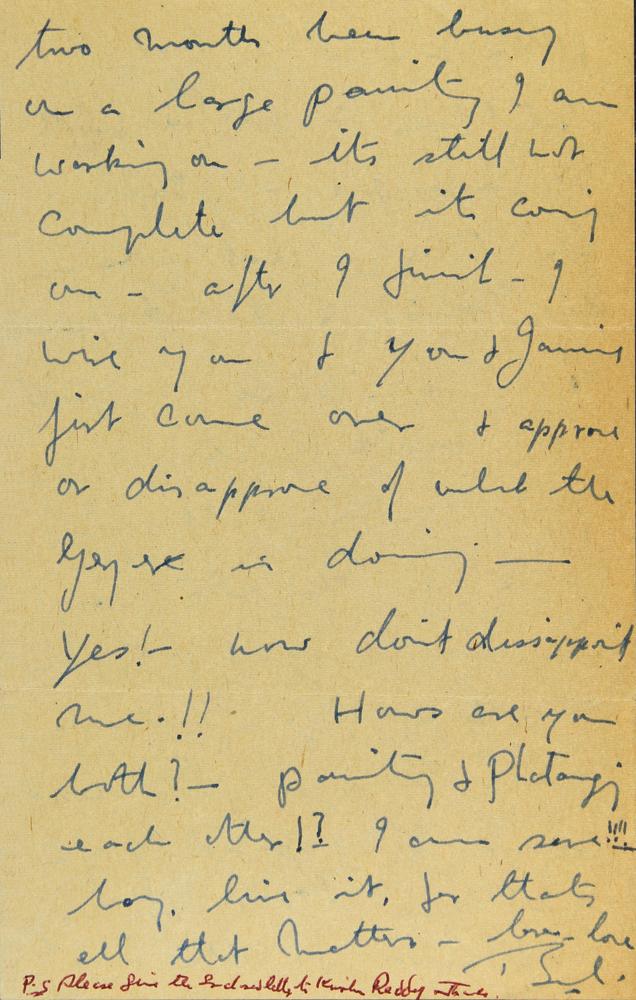 two months been busy
on a large painting I am
working on - its still not
complete but its coming
on - after I finish - I
wire you & you & Jannie
just come over & approve
or disapprove of what the
is doing —
Yes! - now don't dissappoint
me.!! Hows are you
both? - painting & Photoing
each other!? I am sure!!!
boy, live it, for thats
all that matters - love love
P.S Please give the enclosed letter to Krishna Reddy